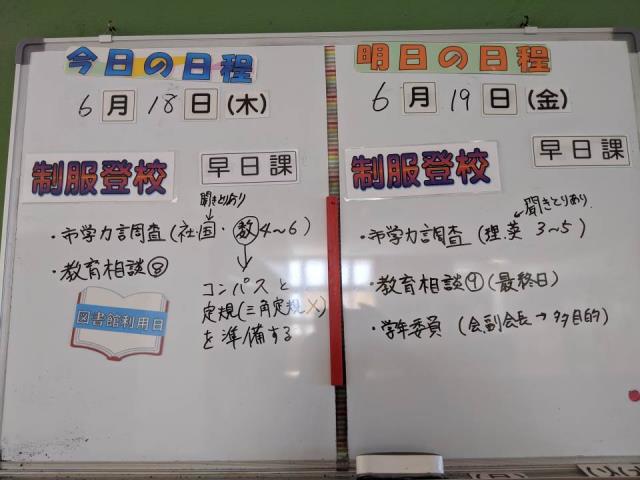 今日の日程
6月18日(木)
制服登校
早日課
聞きとりあり
・市学力調査(社国・数4〜6)
・教育相談⑧
コンパスと
定規(三角定規×)
を準備する
図書館利用日
明日の日程
6月19日(金)
制服登校
早日課
聞きとりあり
・市学力調査(理英 3〜5)
・教育相談⑨(最終日)
・学年委員(会副会長→多目的)